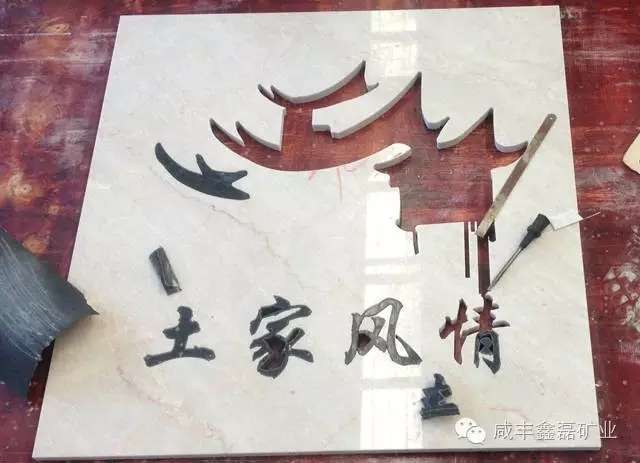 土家风情
咸丰鑫磊矿业